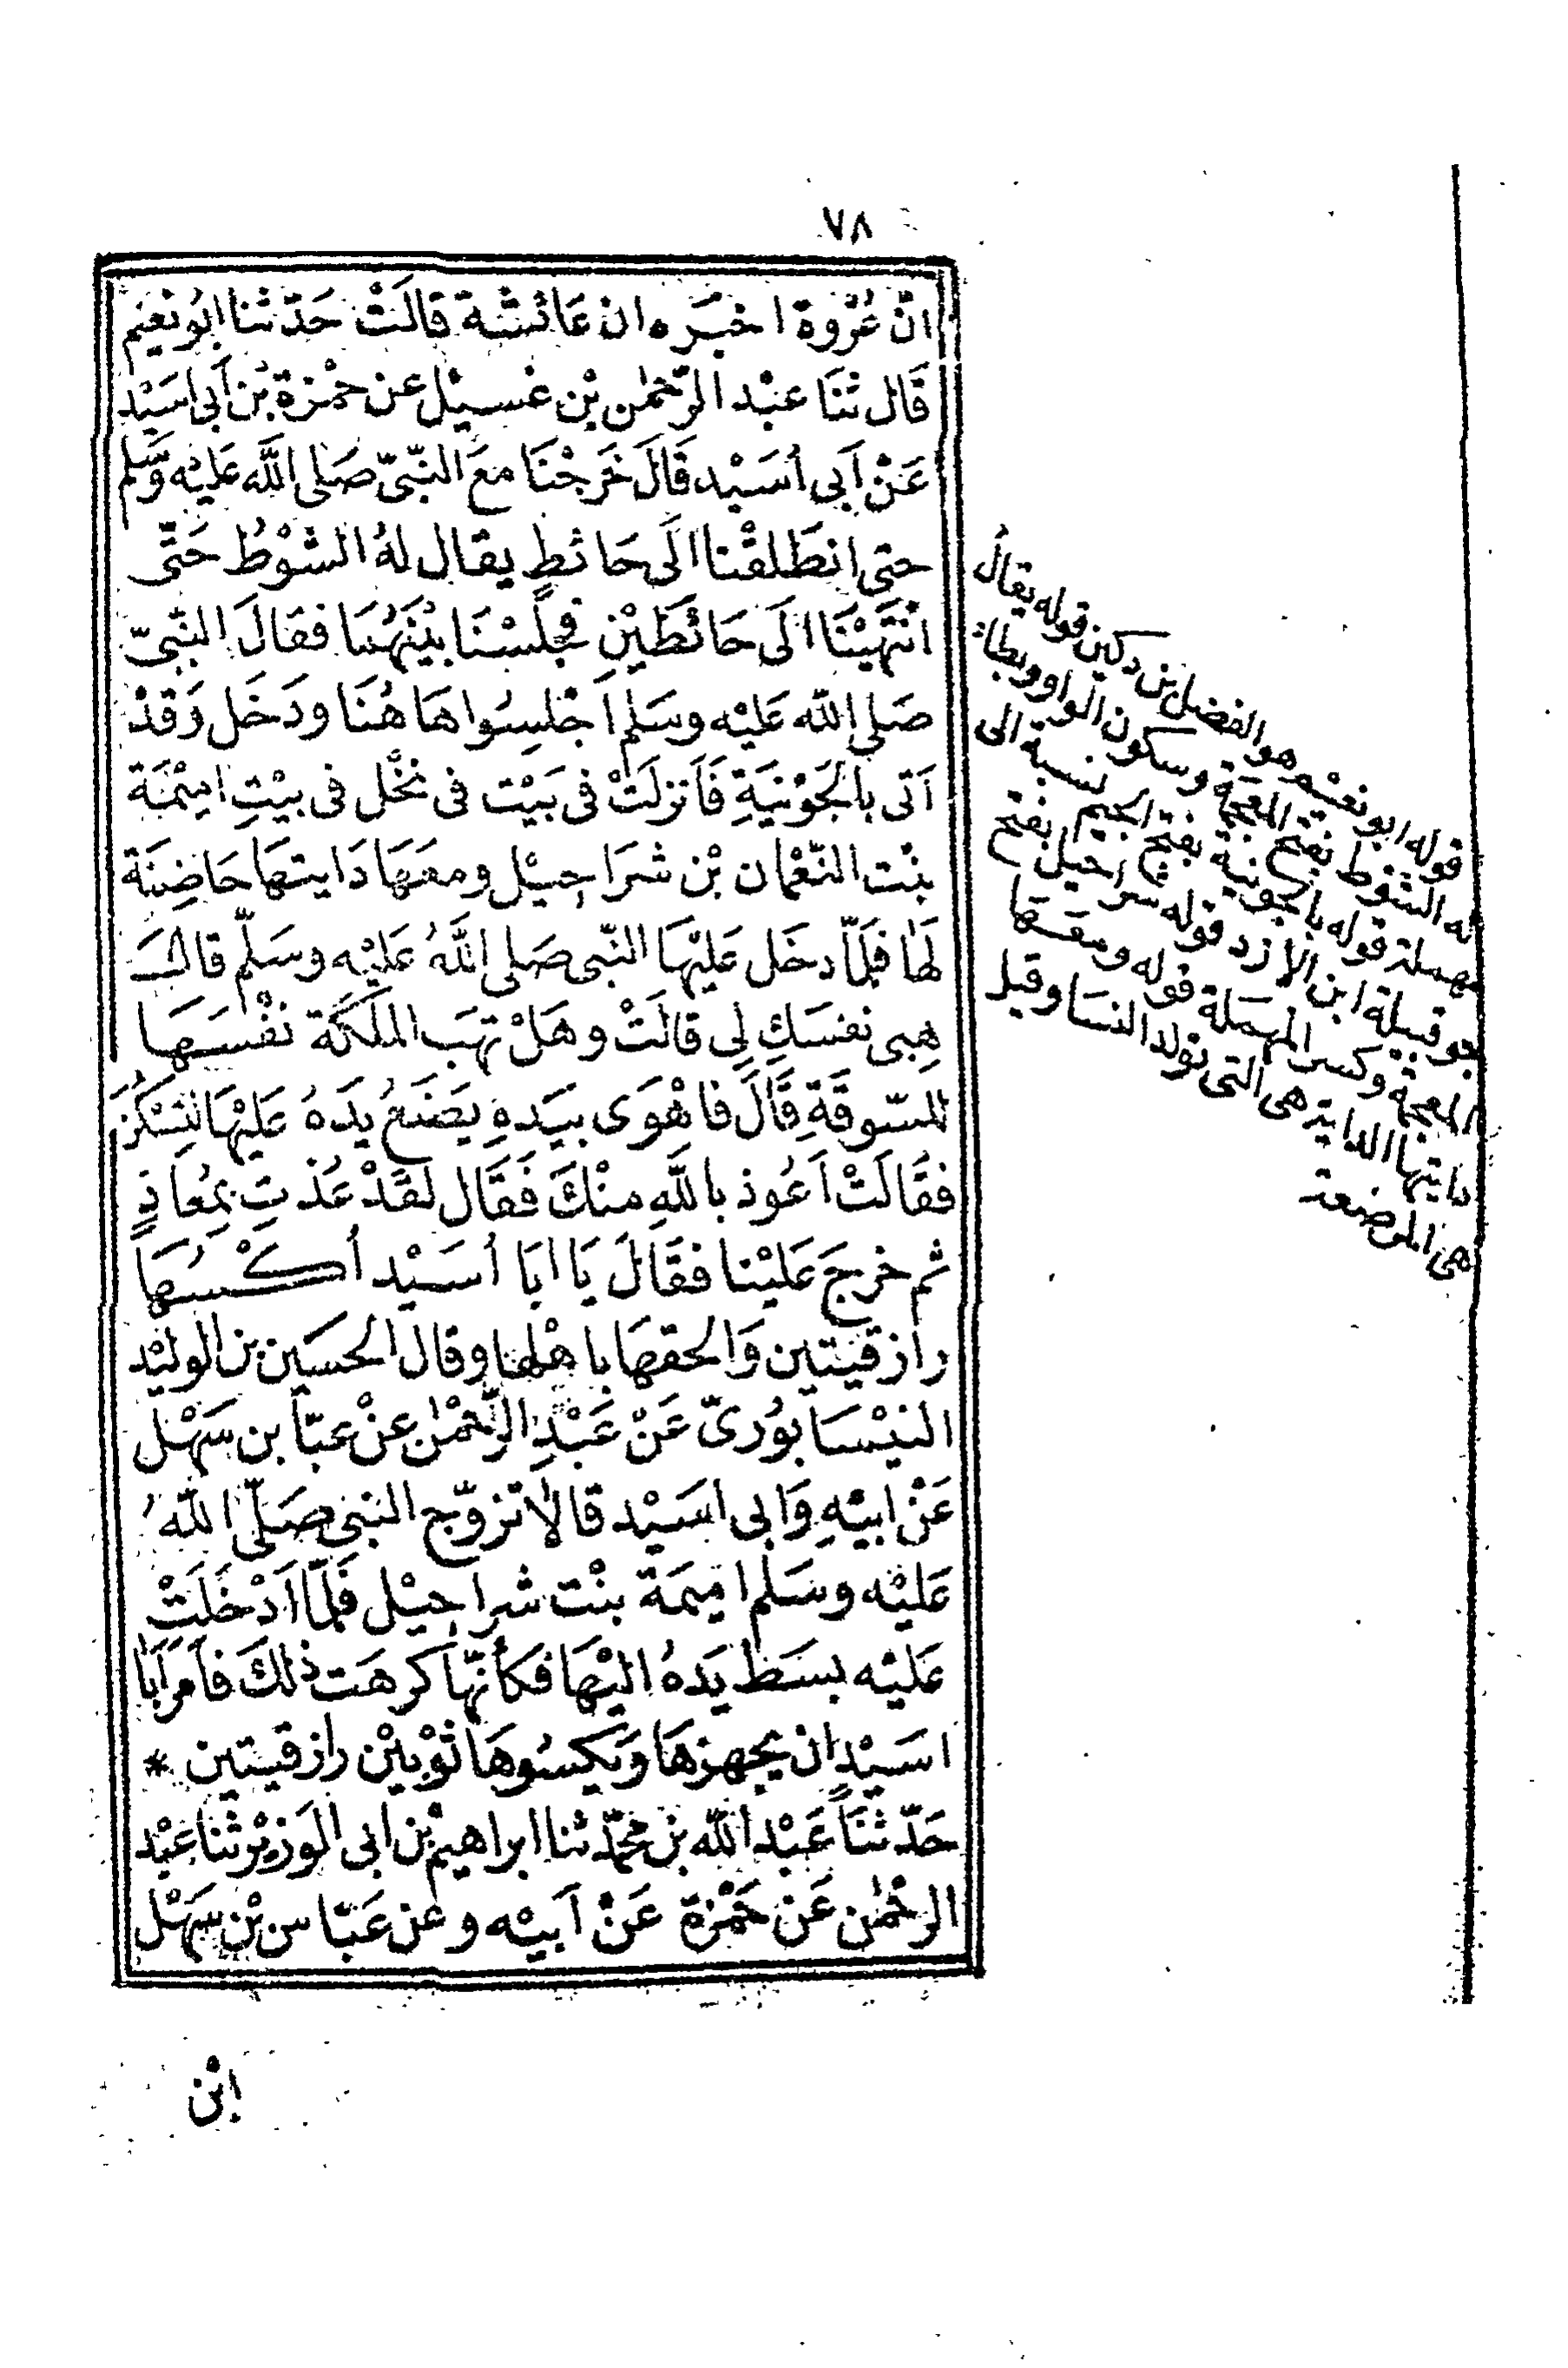 ٧٨
انّ عُرْوة اخبَره ان عَائشة قالَتْ حَدّثنا ابُو نعيم
قَال ثنَا عبْد الرّحمٰن بْن غسيْل عن حمْزة بْن اَبى اسَيْد
عَنْ اَبى اُسَيْد قَالَ خَرجْنَا معَ النّبىّ صَلى اللَّه عَليْه وَسّلم
حتى انطَلقْنا الَى حَائطٍ يقال لهُ الشوْطُ حَتّى
انْتَهَيْنَا الَى حَائطَيْنِ فجلَسْنَا بيْنَهُمَا فقَالَ النّبىّ
صَلى الله عَليْه وسَلم اَجْلِسُوا هَا هُنَا ودَخَل وَقدْ
اَتى بالجَوْنيَةِ فَاَنزلَتْ فى بَيْت فى نخْل فى بيْتِ اميْمَة
بنْت النّعْمان بْن شرَاحيْل ومعَهَا دَايتهَا حَاضِنَة
لَهَا فلمَّا دخَل عَليْهَا النّبى صَلى اللَّهُ عَليْه وسَلّم قالَ
هِبى نفسَكِ لِى قالَتْ وهَلْ تهَب الملكَة نفْسَهَا
للسّوقَةِ قَالَ فاهْوَى بيَدهِ يَضَعُ يدَهُ عَليْهَا لتسْكنَ
فقَالَتْ اَعُوذ باللَّهِ منْكَ فَقَال لقَدْ عُذتِ بمعَاذٍ
ثم خرجَ عَليْنا فقَالَ يَا ابَا اُسَيْد اُكسُهَا
رازقيتين وَالحقهَا باهْلهَا وقال الحسَين بن الوليْد
النيْسَابوُرىّ عَنْ عَبْدِ الرّحْمٰن عنْ عبّا بن سَهْل
عَنْ ابيْهِ وَابى اسَيْد قالاَ تزوّج النبى صَلّى اللَّهُ
عَليْه وسَلم اميمَة بنْت شراحيْل فَلمّا اَدْخَلَتْ
عَليْه بسَط يَدهُ اليْهَا فكأنّهَا كرهَت ذلكَ فاَمرَ اَبَا
اسَيْد ان يجهزهَا وَيكسُوهَا ثوْبيْن رازقيتين *
حَدّثنَا عَبْد اللَّه بن محمّد ثنا ابراهيْم بْن ابى الوَزيْر ثنا عَبْد
الرحْمٰن عَن حَمْزة عَنْ اَبيْه وعن عَبّاس بْن سَهْل
ابْن
قوله ابو نعيْم هو الفضل بن دكين قوله يقالُ
له الشوْط بفتح المعجمة وسكون الواو وبطاء
مهملة قوله بالجونية بفتح الجيم نسبة الى
جو قبيلة ابن الازد قوله شراحيل بفتح
المعجمة وكسر المهملة قوله ومعَهَا
دايتها الداية هى التى تولد النسَا وقيل
هى المرضعة